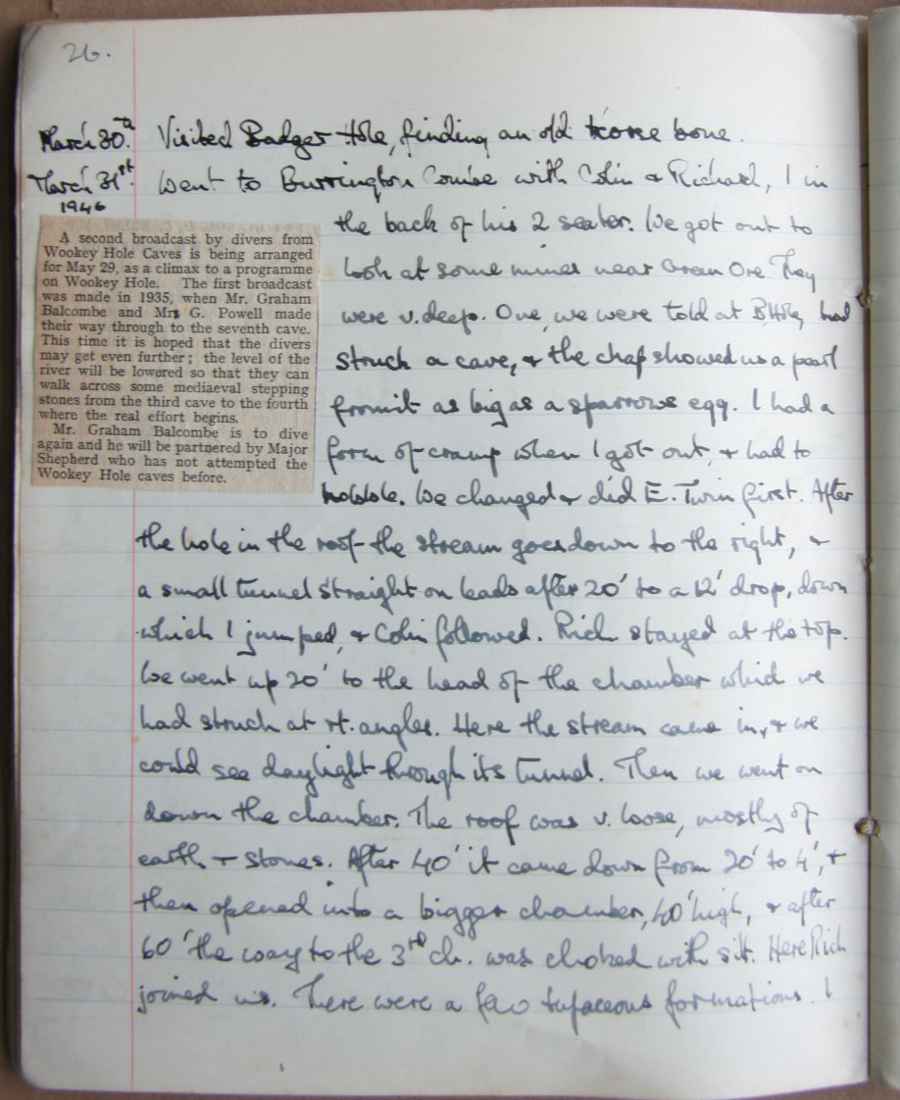 26.
March 30th. Visited Badger Hole, finding an old horse bone.
March 31st. Went to Burrington Combe with Colin & Richard, I in
1946
the back of his 2 seater. We got out to
look at some mines near Green Ore. They
were v. deep. One, we were told at had
struck a cave, & the chap showed us a pearl
from it as big as a sparrows egg. I had a
form of cramp when I got out, & had to
hobble. We changed & did E. Twin first. After
the hole in the roof the stream goes down to the right, &
a small tunnel straight on leads after 20' to a 12' drop, down
which I jumped, & Colin followed. Rich stayed at the top.
We went up 20' to the head of the chamber which we
had struck at rt. angles. Here the stream came in, & we
could see daylight through its tunnel. Then we went on
down the chamber. The roof was v. loose, mostly of
earth & stones. After 40' it came down from 20' to 4', &
then opened into a bigger chamber, 40' high, & after
60' the way to the 3rd ch. was choked with silt. Here Rich
joined us. There were a few tufaceous formations. I
A second broadcast by divers from
Wookey Hole Caves is being arranged
for May 29, as a climax to a programme
on Wookey Hole. The first broadcast
was made in 1935, when Mr. Graham
Balcombe and Mrs G. Powell made
their way through to the seventh cave.
This time it is hoped that the divers
may get even further; the level of the
river will be lowered so that they can
walk across some mediaeval stepping
stones from the third cave to the fourth
where the real effort begins.
Mr. Graham Balcombe is to dive
again and he will be partnered by Major
Shepherd who has not attempted the
Wookey Hole caves before.